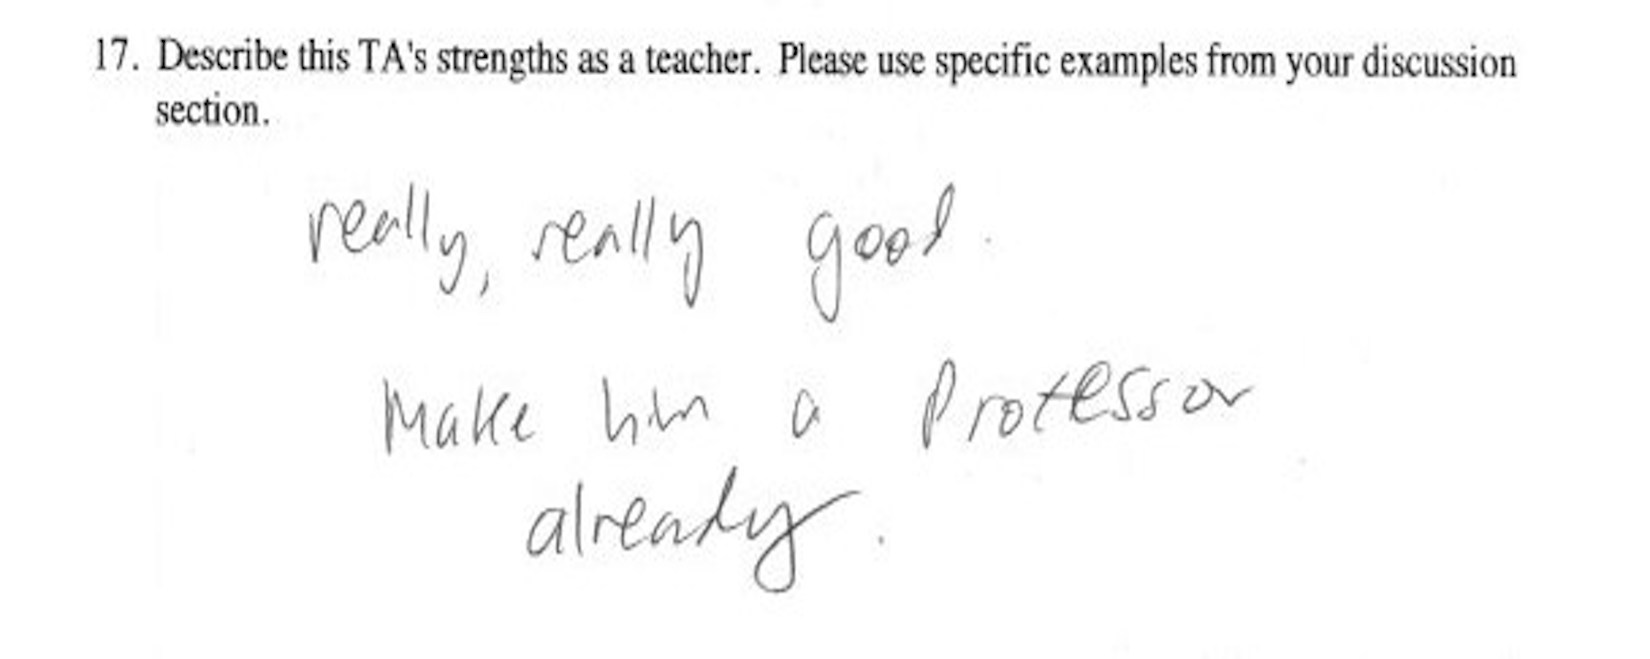 17. Describe this TA's strengths as a teacher. Please use specific examples from your discussion
section.
really, really good.
Make him a Professor
already.